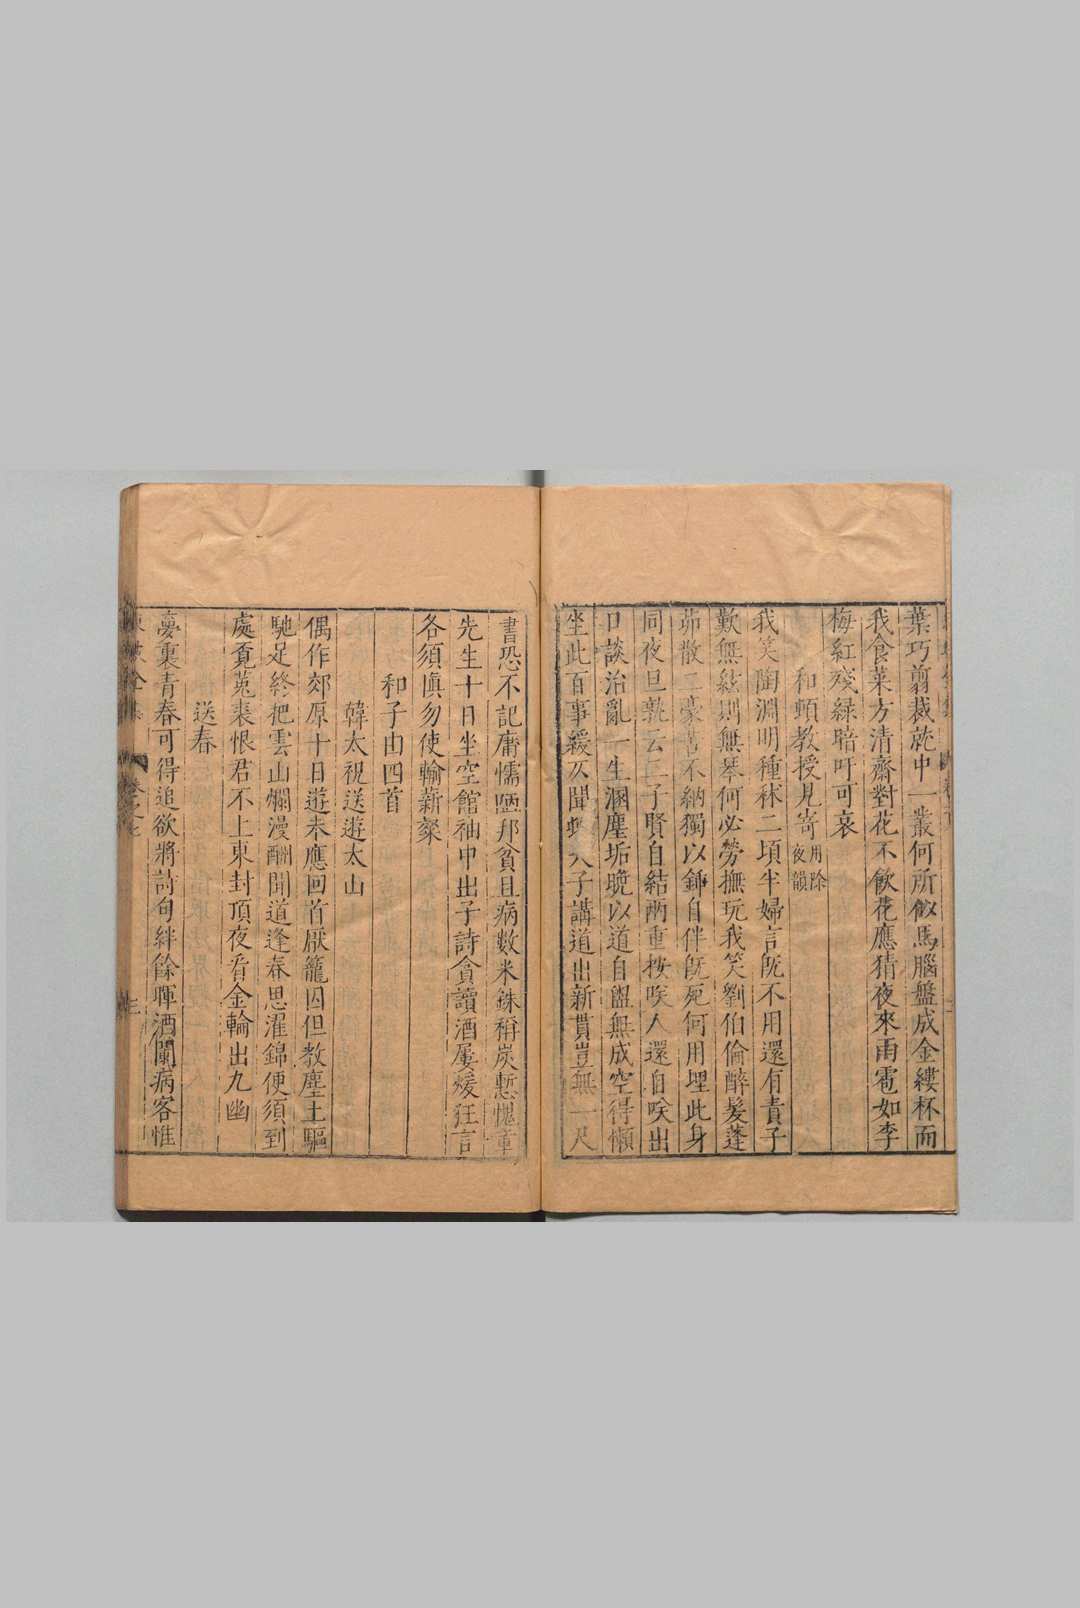 葉巧翦裁就中一叢何所似馬腦盤成金縷杯而
我食菜方清齋對花不飲花應猜夜來雨雹如李
梅紅殘綠暗吁可哀
和頓教授見寄用除夜韻
我笑陶淵明種秫二頃半婦言旣不用還有責子
歎無絃則無琴何必勞撫玩我笑劉伯倫醉髮蓬
茆散二豪苦不納獨以鍤自伴旣死何用埋此身
同夜旦孰云二子賢自結兩重按笑人還自笑出
口談治亂一生溷塵垢晚以道自盥無成空得懶
坐此百事緩仄聞 夫子講道出新貫豈無一尺
書恐不記庸懦陋邦貧且病數米銖稱炭慙愧章
先生十日坐空館袖中出子詩貪讀酒屢煖狂言
各須愼勿使輸薪粲
和子由四首
韓太祝送遊太山
偶作郊原十日遊未應回首厭籠囚但教塵土驅
馳足終把雲山爛漫酬聞道逢春思濯錦便須到
處覓菟裘恨君不上東封頂夜看金輪出九幽
送春
夢裏青春可得追欲將詩句絆餘暉酒闌病客惟